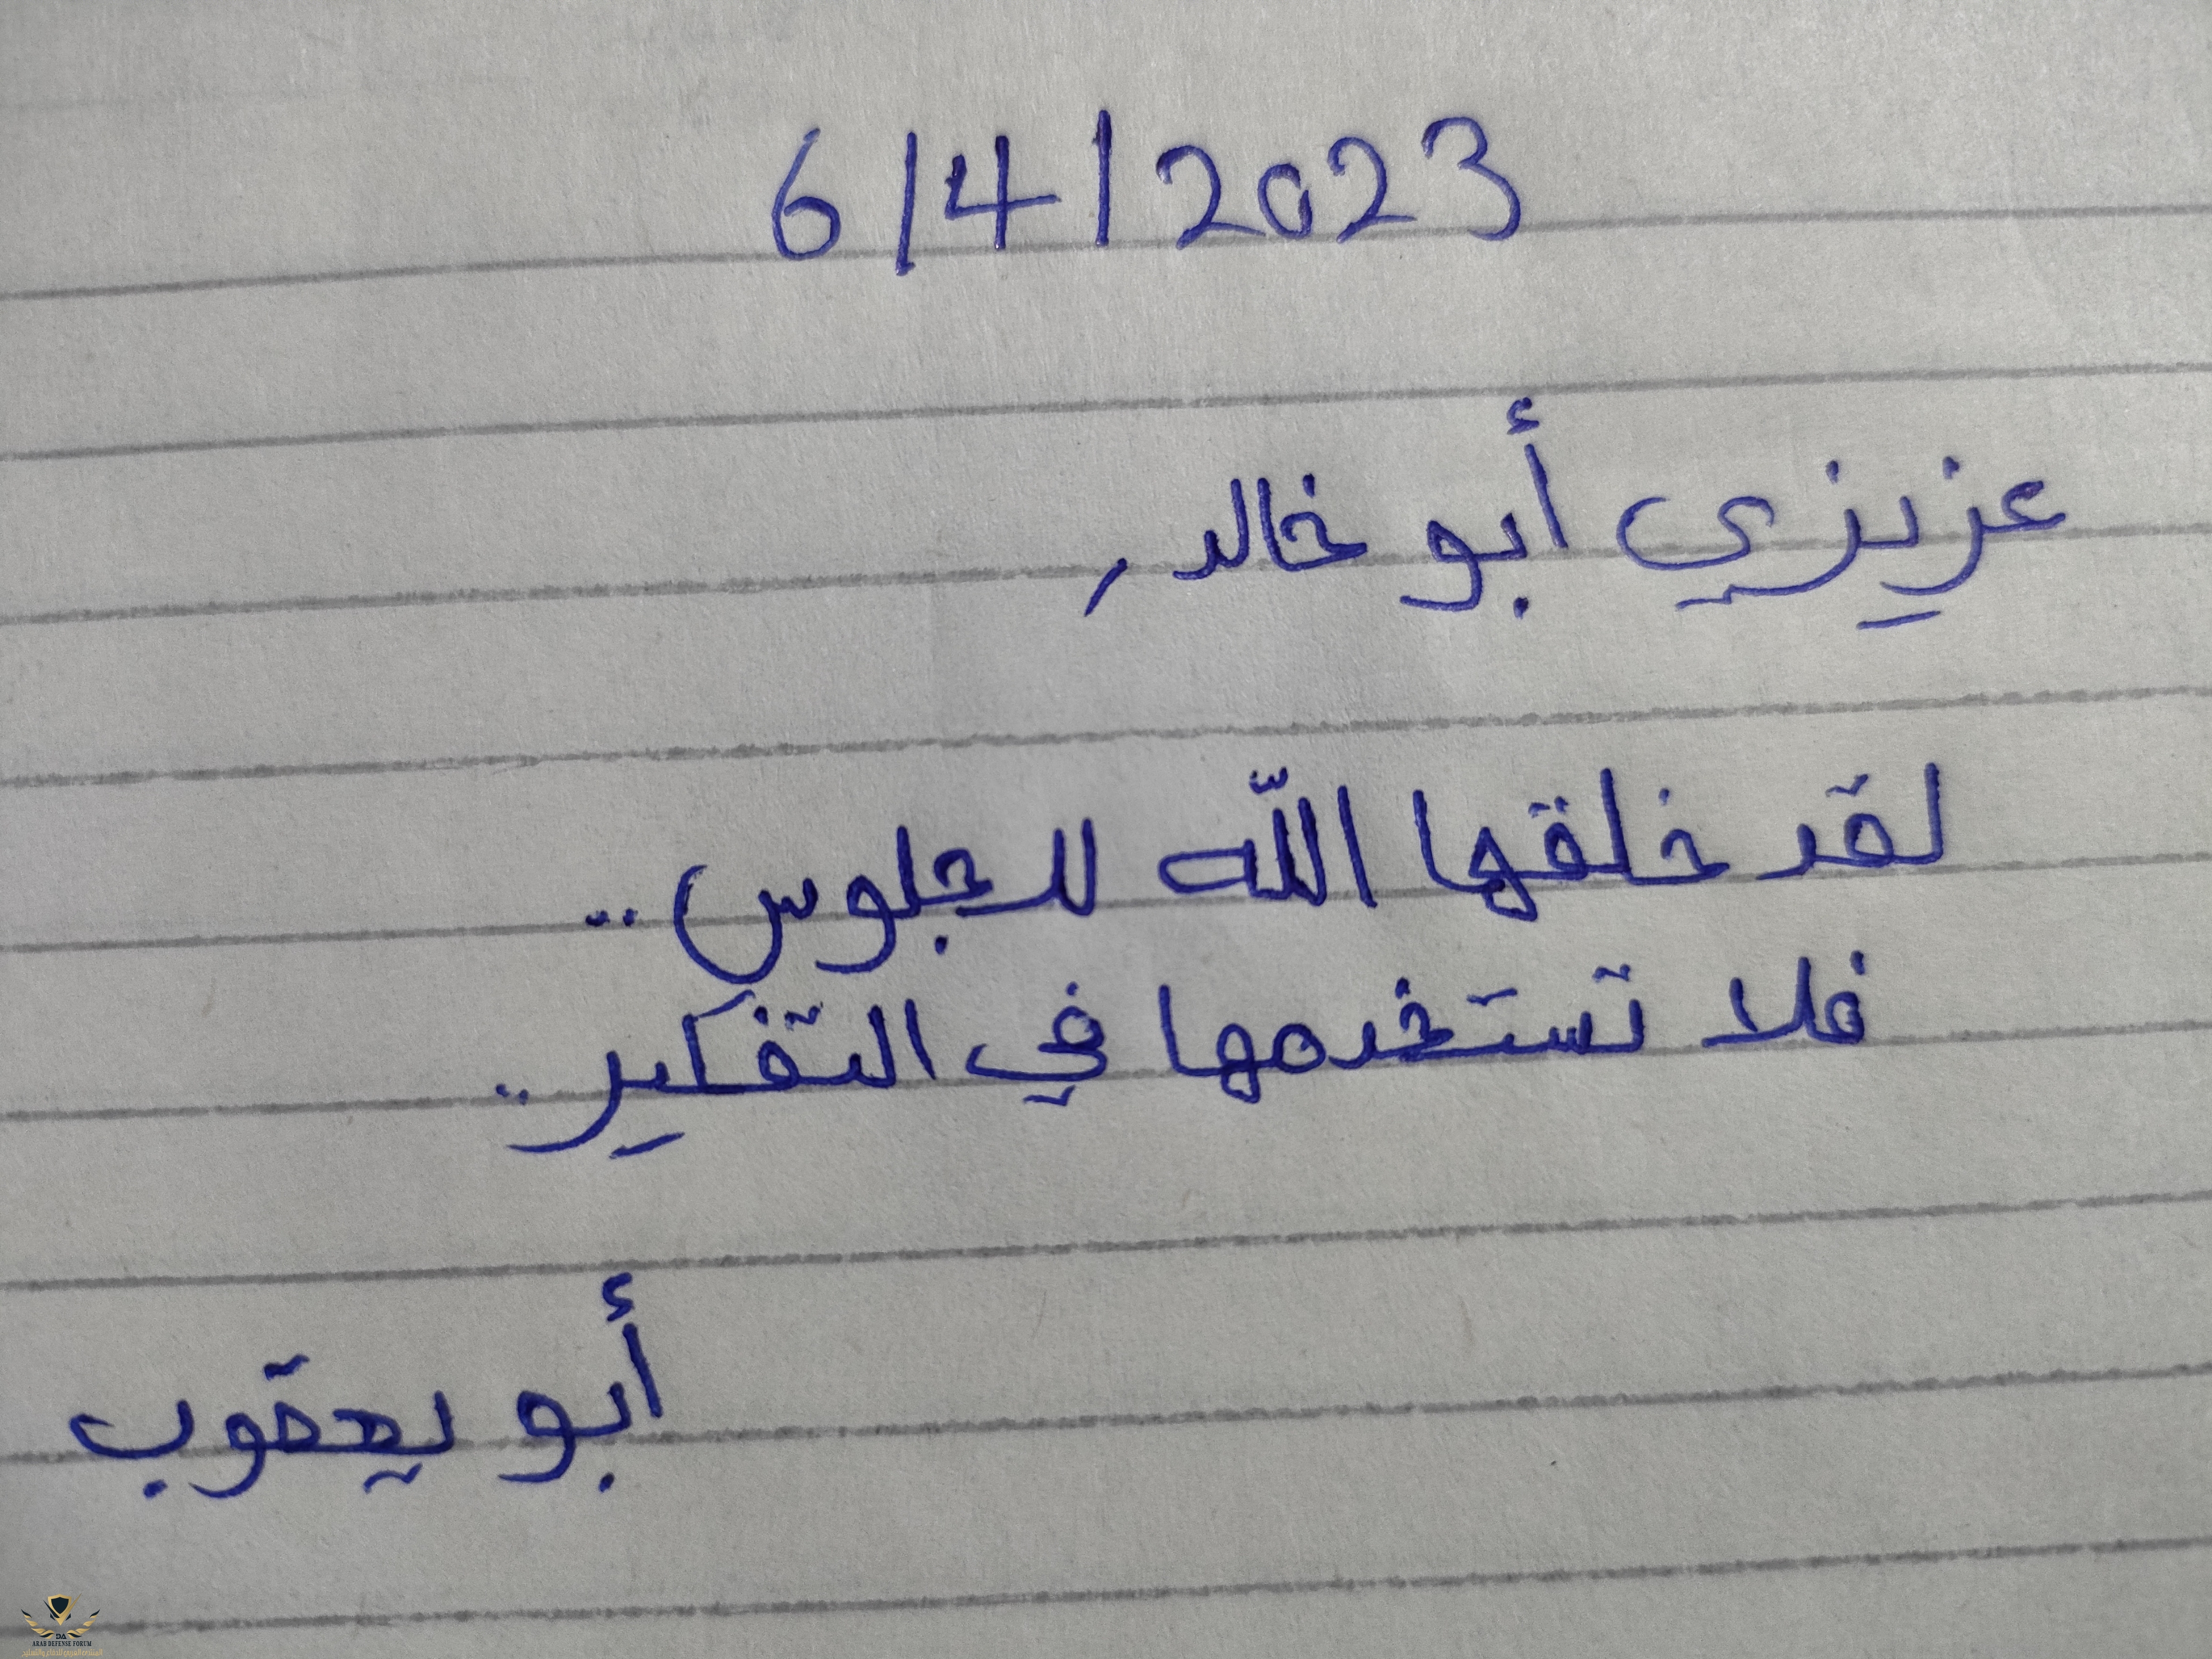 6/4/2023
عزيزي أبو خالد,
لقد خلقها اللّه للجلوس..
فلا تستخدمها في التفكير..
أبو يعقوب
DA
ARAB DEFENSE FORUM